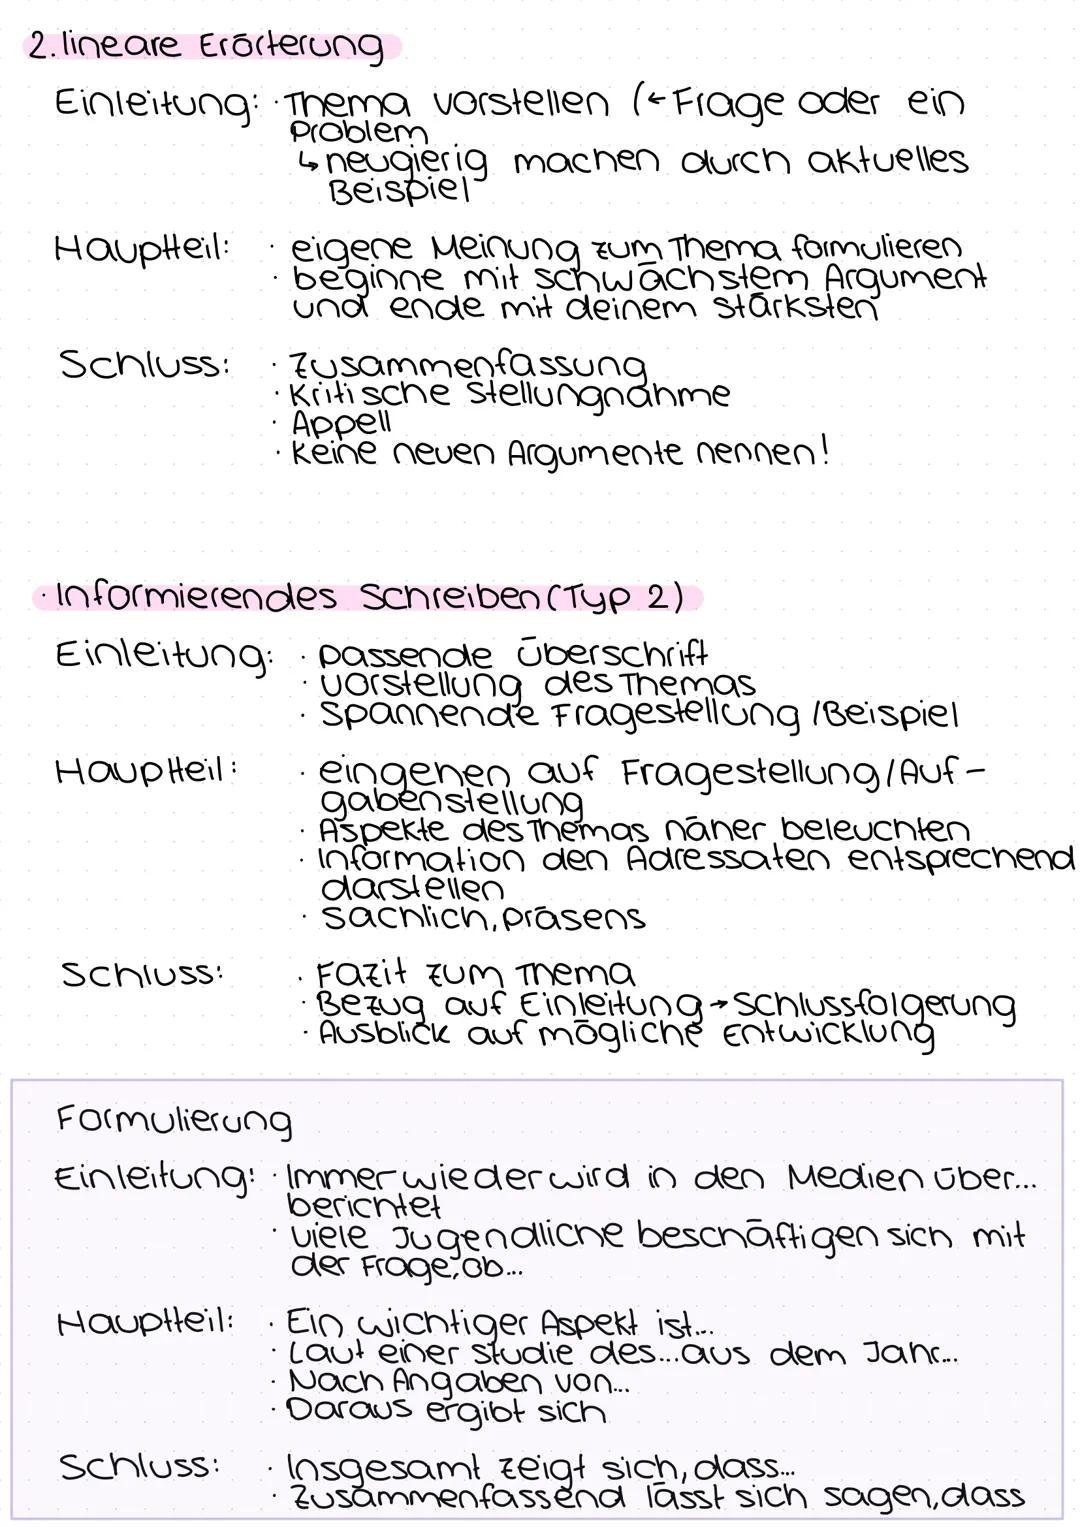 2. lineare Erörterung
Einleitung: · Thema vorstellen (← Frage oder ein
Problem
↳ neugierig machen durch aktuelles
Beispiel
Hauptteil: · eigene Meinung zum Thema formulieren
· beginne mit schwächstem Argument
und ende mit deinem stärksten
Schluss: · Zusammenfassung
· Kritische Stellungnahme
· Appell
· Keine neuen Argumente nennen!
· Informierendes Schreiben (Typ 2)
Einleitung: · passende Überschrift
· Vorstellung des Themas
· Spannende Fragestellung / Beispiel
Hauptteil: · eingehen auf Fragestellung/Auf-
gabenstellung
· Aspekte des Themas näher beleuchten
· Information den Adressaten entsprechend
darstellen
· sachlich, präsens
Schluss: · Fazit zum Thema
· Bezug auf Einleitung → Schlussfolgerung
· Ausblick auf mögliche Entwicklung
Formulierung
Einleitung: · Immer wieder wird in den Medien über...
berichtet
· Viele Jugendliche beschäftigen sich mit
der Frage, ob...
Hauptteil: · Ein wichtiger Aspekt ist...
· Laut einer Studie des...aus dem Jahr...
· Nach Angaben von...
· Daraus ergibt sich
Schluss: · Insgesamt zeigt sich, dass...
· Zusammenfassend lässt sich sagen, dass